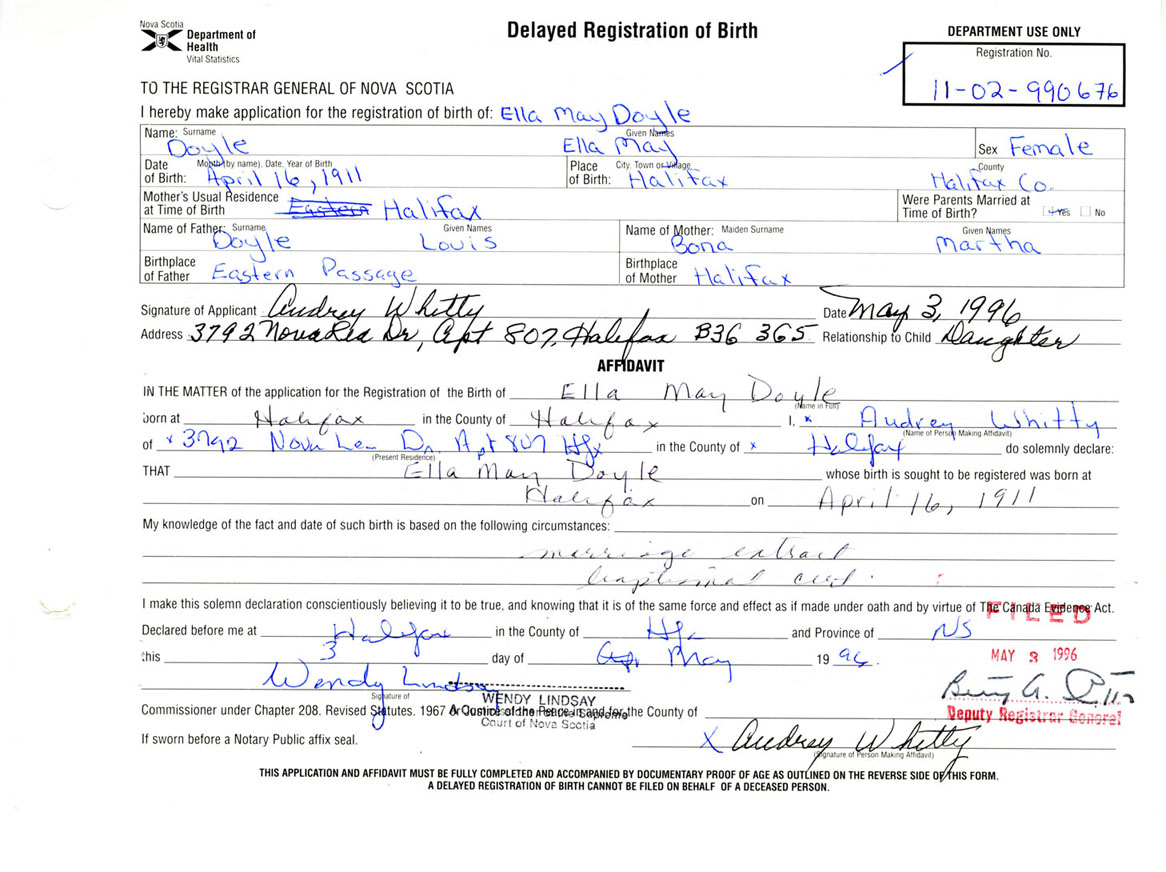 Nova Scotia
Department of
Health
Vital Statistics
Delayed Registration of Birth
DEPARTMENT USE ONLY
Registration No.
11-02-990676
TO THE REGISTRAR GENERAL OF NOVA SCOTIA
I hereby make application for the registration of birth of: Ella May Doyle
Name: Surname Given Names
Doyle Ella May Sex Female
Date Month (by name), Date, Year of Birth Place City, Town or Village County
of Birth: April 16, 1911 of Birth: Halifax Halifax Co.
Mother's Usual Residence Were Parents Married at
at Time of Birth Eastern Halifax Time of Birth? Yes No
Name of Father: Surname Given Names Name of Mother: Maiden Surname Given Names
Doyle Louis Bona Martha
Birthplace Birthplace
of Father Eastern Passage of Mother Halifax
Signature of Applicant Audrey Whitty Date May 3, 1996
Address 3792 Novalea Dr, Apt 807, Halifax B3G 3G5 Relationship to Child Daughter
AFFIDAVIT
IN THE MATTER of the application for the Registration of the Birth of Ella May Doyle
(Name in Full)
born at Halifax in the County of Halifax I, x Audrey Whitty
(Name of Person Making Affidavit)
of x 3792 Nova Lea Dr. Apt 807 Hfx in the County of x Halifax do solemnly declare:
(Present Residence)
THAT Ella May Doyle whose birth is sought to be registered was born at
Halifax on April 16, 1911
My knowledge of the fact and date of such birth is based on the following circumstances:
marriage extract
baptismal cert.
I make this solemn declaration conscientiously believing it to be true, and knowing that it is of the same force and effect as if made under oath and by virtue of The Canada Evidence Act.
FILED
Declared before me at Halifax in the County of Hfx and Province of NS
this 3 day of Apr May 19 96.
MAY 3 1996
Wendy Lindsay
Signature of
WENDY LINDSAY
Commissioner under Chapter 208. Revised Statutes. 1967 Or Justice of the Peace in and for the County of
Court of Nova Scotia
Deputy Registrar General
If sworn before a Notary Public affix seal.
X Audrey Whitty
(Signature of Person Making Affidavit)
THIS APPLICATION AND AFFIDAVIT MUST BE FULLY COMPLETED AND ACCOMPANIED BY DOCUMENTARY PROOF OF AGE AS OUTLINED ON THE REVERSE SIDE OF THIS FORM.
A DELAYED REGISTRATION OF BIRTH CANNOT BE FILED ON BEHALF OF A DECEASED PERSON.